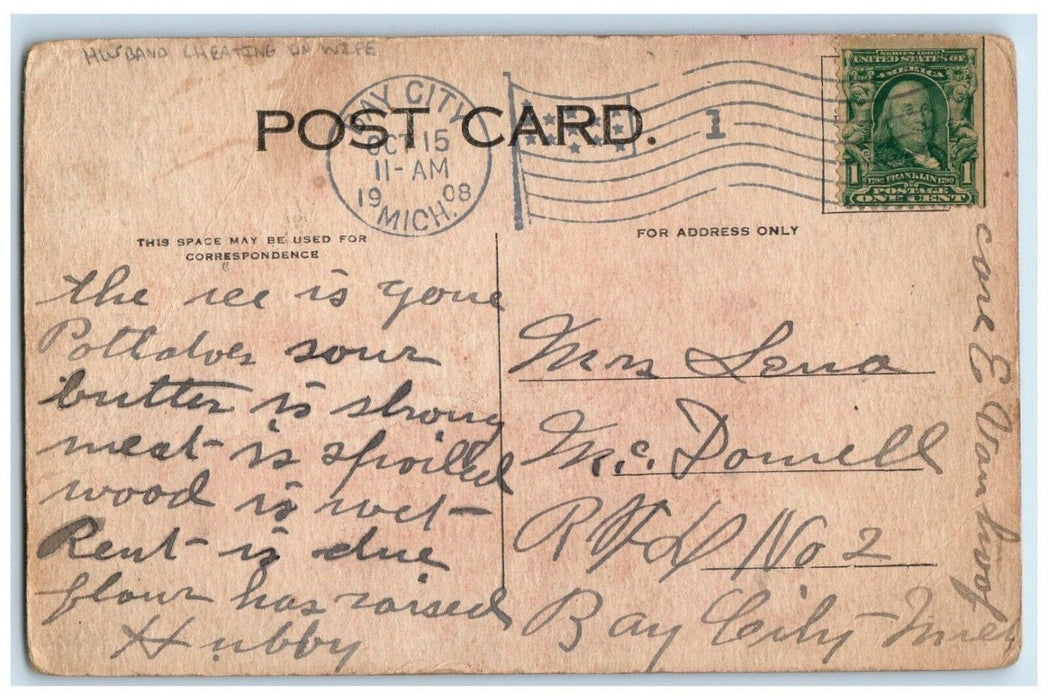 HUSBAND CHEATING ON WIFE
POST CARD.
BAY CITY
OCT 15
11-AM
1908
MICH.
1
SERIES 1902
UNITED STATES OF
AMERICA
1706 FRANKLIN 1790
1 POSTAGE 1
ONE CENT
THIS SPACE MAY BE USED FOR
CORRESPONDENCE
FOR ADDRESS ONLY
the ice is gone
Pottatoes sour
butter is strong
meat is spoiled
wood is wet
Rent is due
flour has raised
Hubby
Mrs Lena
Mc. Donell
R F D No 2
Bay City Mich
care E